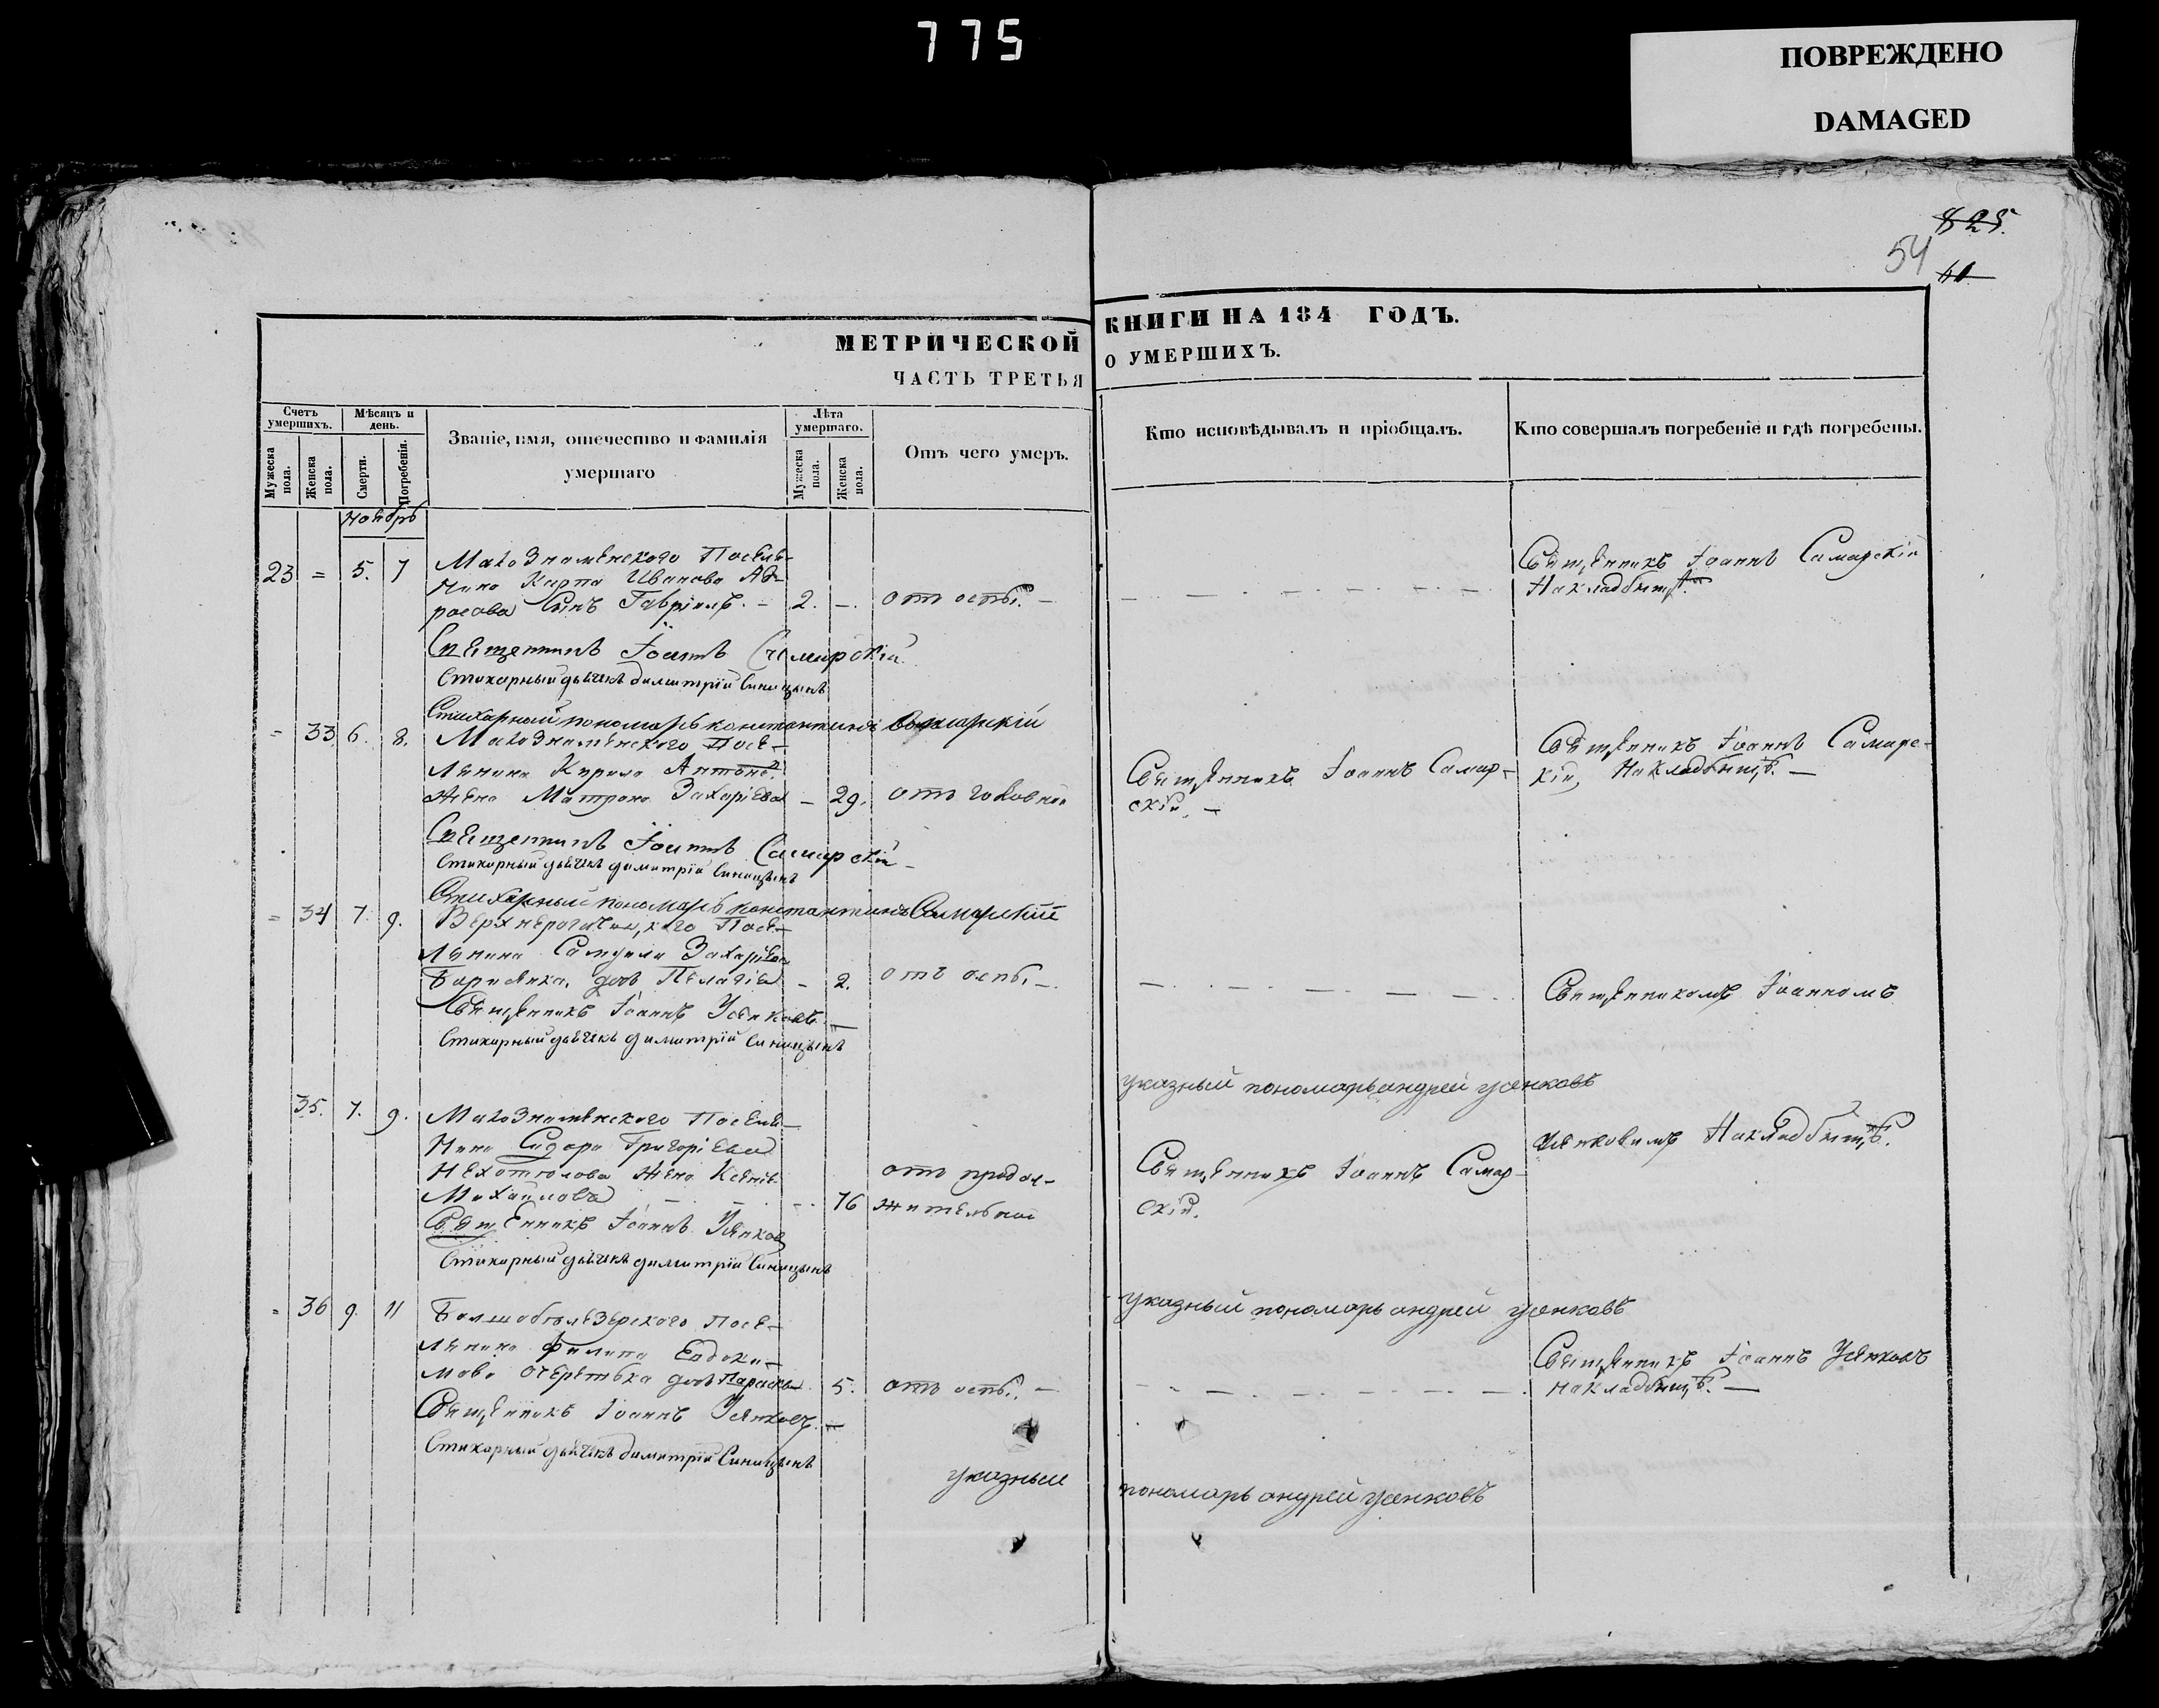 775
ПОВРЕЖДЕНО
DAMAGED
825.
54
МЕТРИЧЕСКОЙ КНИГИ НА 184 ГОДЪ.
ЧАСТЬ ТРЕТЬЯ О УМЕРШИХЪ.
Счетъ умершихъ.
Мужеска пола.
Женска пола.
Мѣсяцъ и день.
Смерти.
Погребенія.
Званіе, имя, отечество и фамилія
умершаго
Лѣта умершаго.
Мужеска пола.
Женска пола.
Отъ чего умеръ.
Кто исповѣдывалъ и пріобщалъ.
Кто совершалъ погребеніе и гдѣ погребены.
Ноябрь
23 = 5. 7
Малознаменского Поселя-
нина Карпа Иванова
сынъ Гавріилъ. - 2. - отъ оспы. -
Священникъ Іоаннъ Самарскій
На кладбищѣ.
Священникъ Іоаннъ Самарскій
Стихарный дьячекъ Димитрій Синицынъ
Стихарный пономарь Константинъ Самарскій
= 33 6. 8.
Малознаменского Посе-
лянина Кирила Антоно.
жена Матрона Захаріева - 29. отъ
Священникъ Іоаннъ Самар-
скій. -
Священникъ Іоаннъ Самарс-
кій, На кладбищѣ. -
Священникъ Іоаннъ Самарскій -
Стихарный дьячекъ Димитрій Синицынъ
Стихарный пономарь Константинъ Самарскій
= 34 7. 9.
Посе-
лянина Самуила Захаріева
дочь Пелагія - 2. отъ оспы -
Священникомъ Іоанномъ
Усенковымъ На кладбищѣ.
Священникъ Іоаннъ Усенковъ. -
Стихарный дьячекъ Димитрій Синицынъ
указный пономарь андрей усенковъ
35. 7. 9.
Малознаменского Поселя-
нина Сидора Григоріева
жена Ксенія
Михайлова - 76 отъ продол-
жительной
Священникъ Іоаннъ Самар-
скій.
Священникъ Іоаннъ Усенков
Стихарный дьячекъ Димитрій Синицынъ
указный пономарь андрей усенковъ
= 36 9. 11
Посе-
лянина Филипа Евдоки-
мова дочь Параскева 5. отъ оспы. -
Священникъ Іоаннъ Усенковъ
на кладбищѣ. -
Священникъ Іоаннъ Усенковъ. -
Стихарный дьячекъ Димитрій Синицынъ
указный пономарь андрей усенковъ